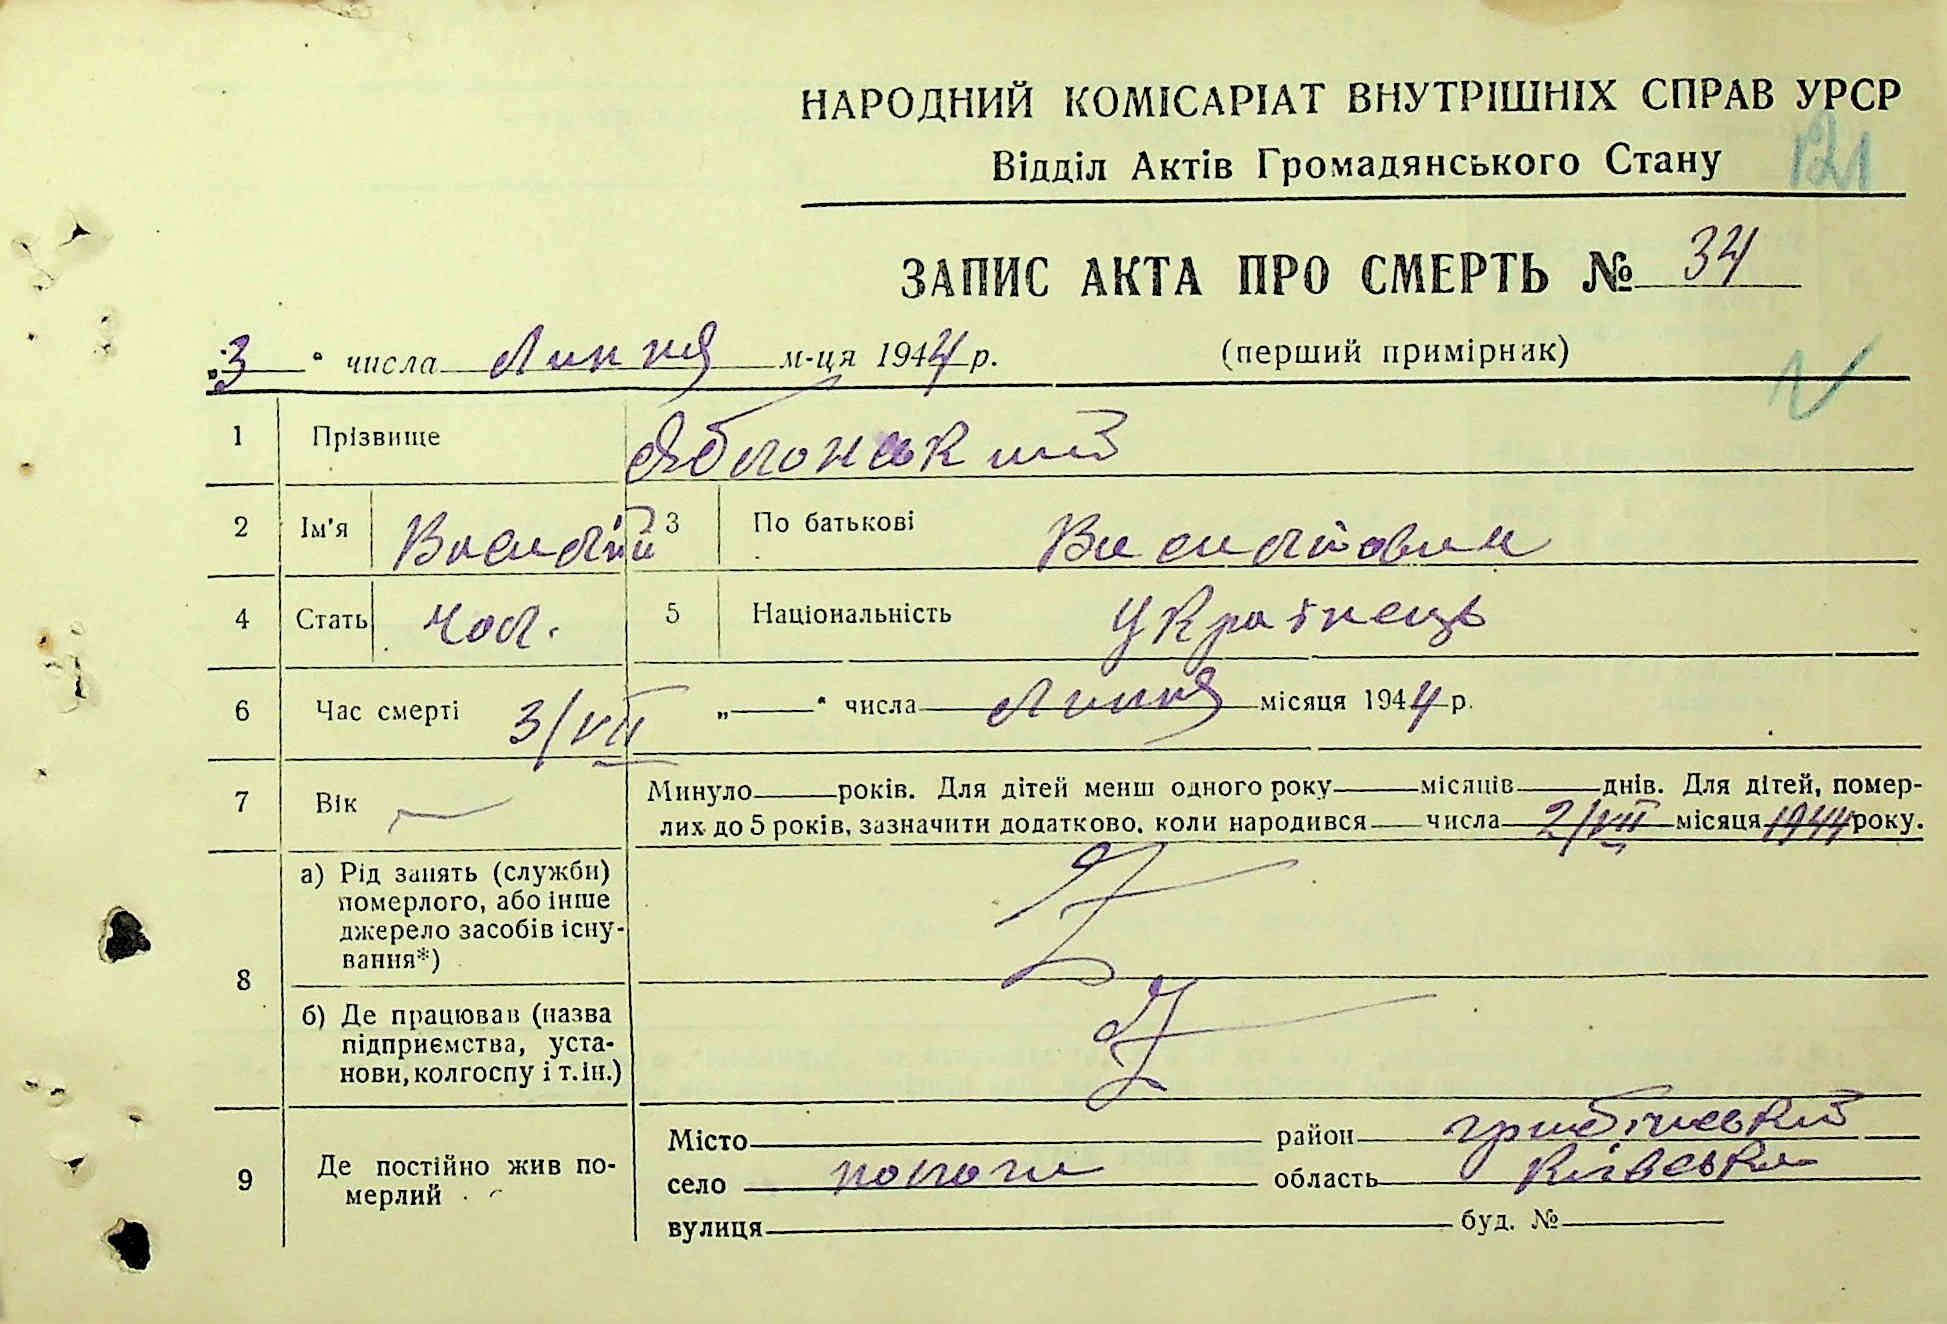 НАРОДНИЙ КОМІСАРІАТ ВНУТРІШНІХ СПРАВ УРСР
Відділ Актів Громадянського Стану 121
ЗАПИС АКТА ПРО СМЕРТЬ № 34
„3" числа Липня м-ця 1944 р. (перший примірник)
1 Прізвище Яблонський
2 Ім'я Василій 3 По батькові Васильович
4 Стать чол. 5 Національність Українець
6 Час смерті 3/VII „—" числа Липня місяця 1944 р.
7 Вік — Минуло—років. Для дітей менш одного року—місяців—днів. Для дітей, помер-
лих до 5 років, зазначити додатково, коли народився—числа 2/VII місяця 1944 року.
8 а) Рід занять (служби)
померлого, або інше
джерело засобів існу-
вання*)
б) Де працював (назва
підприємства, уста-
нови, колгоспу і т. ін.)
9 Де постійно жив по-
мерлий
Місто район
село область Київська
вулиця буд. №